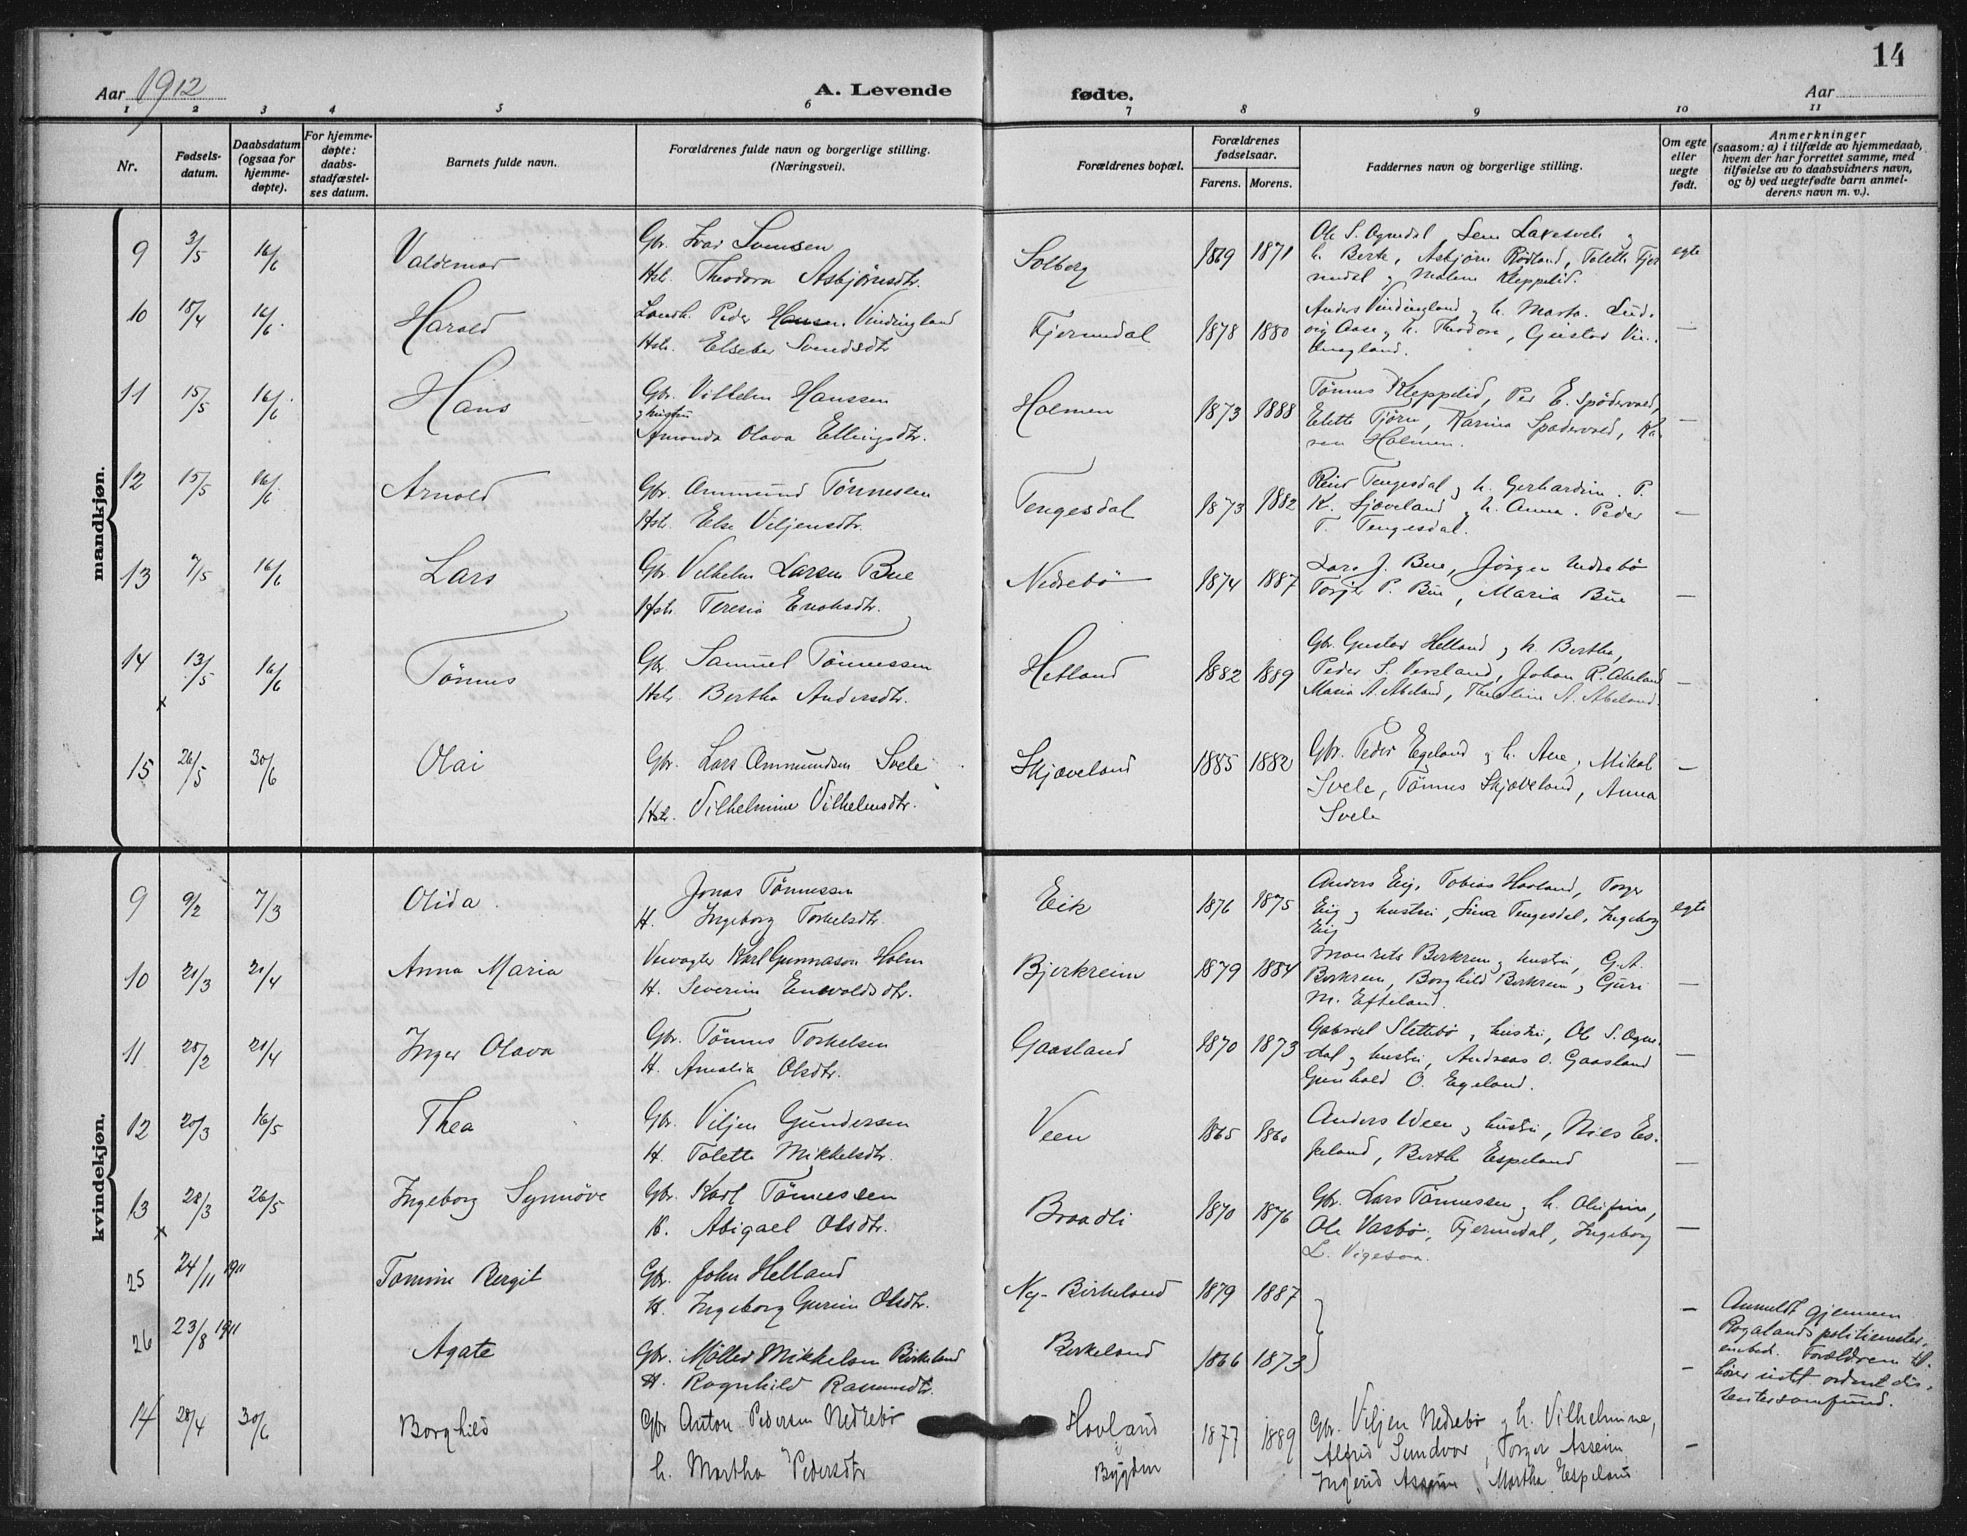 14
Aar 1912
A. Levende
fødte.
Aar
1 2 3 4 5 6 7 8 9 10 11
Nr.
Fødsels-
datum.
Daabsdatum
(ogsaa for
hjemme-
døpte).
For hjemme-
døpte:
daabs-
stadfæstel-
ses datum.
Barnets fulde navn.
Forældrenes fulde navn og borgerlige stilling.
(Næringsvei).
Forældrenes bopæl.
Forældrenes
fødselsaar.
Farens. Morens.
Faddernes navn og borgerlige stilling.
Om egte
eller
uegte
født.
Anmerkninger
(saasom: a) i tilfælde av hjemmedaab,
hvem der har forrettet samme, med
tilføielse av to daabsvidners navn,
og b) ved uegtefødte barn anmel-
derens navn m. v.).
mandkjøn.
9 3/5 16/6 Valdemar
Gbr. Ivar Svensen
Hst. Theodora Asbjørnsdtr.
Solberg 1869 1871
Ole S. Ognedal,
h. Berte, Asbjørn Rødland, Tolette Fjer
mdal og Malene Kleppelid.
egte
10 18/4 16/6 Harald
Landh. Peder Hansen Vindingland
Hst. Elseber Svendsdtr
Fjermedal 1878 1880
Anders Vindingland og h. Marta. Lud-
vig Aase og h. Theodora, Gustav Vin-
dingland.
—
11 15/5 16/6 Hans
Gbr. Vilhelm Hanssen
og hustru
Amanda Olava Ellingsdtr.
Holmen 1873 1888
Tønnes Kleppelid, Per E. Spødervold,
Elette Tjørn, Karina Spødervold, Ka-
ren Holmen.
—
12 15/5 16/6 Arnold
Gbr. Ammund Tønnessen
Hst. Else Viljensdtr.
Tengesdal 1873 1882
Reier Tengesdal og h. Gerhardine. P.
K. Sjæveland og h. Anna. Peder
T. Tengesdal.
—
13 7/5 16/6 Lars
Gbr. Vilhelm Larsen Bue
Hst. Teresia Enoksdtr.
Nedrebö 1874 1887
Lars J. Bue, Jörgen Nedrebö
Torger P. Bue, Maria Bue
—
14 13/5 16/6 Tønnes
Gbr. Samuel Tönnessen
Hst. Bertha Andersdtr.
Hetland 1882 1889
Gbr. Gustav Helland og h. Bertha,
Peder S. Versland, Johan R. Abeland
Maria A. Abeland, Theoline A. Abeland.
—
x
15 26/5 30/6 Olai
Gbr. Lars Ammundsen Svele
Hst. Vilhelmine Vilhelmsdtr.
Skjæveland 1885 1882
Gbr. Peder Egeland og h. Ane, Mikal
Svele, Tønnes Skjæveland, Anna
Svele
—
kvindekjøn.
9 9/2 7/3 Olida.
Jonas Tønnessen
H. Ingeborg Torkelsdtr.
Eik 1876 1875
Anders Eig, Tobias Hovland, Torger
Eig og hustru, Sina Tengesdal, Ingeborg
Eig
egte
10 21/3 21/4 Anna Maria
Veivogter Karl Gunnason Holm
H. Severine Enevoldsdtr.
Bjerkreim 1879 1884
Mauritz Birkrem og hustru, G. A.
Birkrem, Borghild Birkrem og Guri
M. Efteland.
—
11 28/2 21/4 Inger Olava
Gbr. Tønnes Torkelsen
H. Amalia Olsdtr.
Gaasland 1870 1873
Gabriel Slettebø og hustru, Ole S. Ogne-
dal og hustru, Andreas O. Gaasland
Gunhald O. Egeland.
—
12 20/3 16/5 Thea
Gbr. Viljen Gundersen
H. Tolette Mikkelsdtr.
Veen 1865 1860
Anders Veen og hustru, Nils Es-
peland, Berthe Espeland
—
13 28/3 26/5 Ingeborg Synnöve
Gbr. Karl Tönnessen
H. Abigael Olsdtr.
Braadli 1870 1876
Gbr. Lars Tønnessen og h. Olufine,
Ole Vasbö, Fjermedal, Ingeborg
L. Vigesaa.
—
x
25 24/11 1911 Tomine Bergit
Gbr. John Helland
H. Ingeborg Gurine Olsdtr.
Ny-Birkeland 1879 1887
—
26 23/8 1911 Agate
Gbr. Møller Mikkelsen Birkeland
H. Ragnhild Rasmusdtr.
Birkeland 1866 1873
—
Anmeldt gjennem
Rogalands politimester-
embed. Forældrene til-
hører intet ordnet dis-
sentersamfund.
14 28/4 30/6 Borghild
Gbr Anton Pedersen Nedrebø
h. Martha Pedersdtr
Hovland
Bygden
1877 1889
Gbr. Viljen Nedrebö og h. Vilhelmine,
Alfred Sundvor, Torger Asseim
Ingerid Asseim, Martha Espeland
—